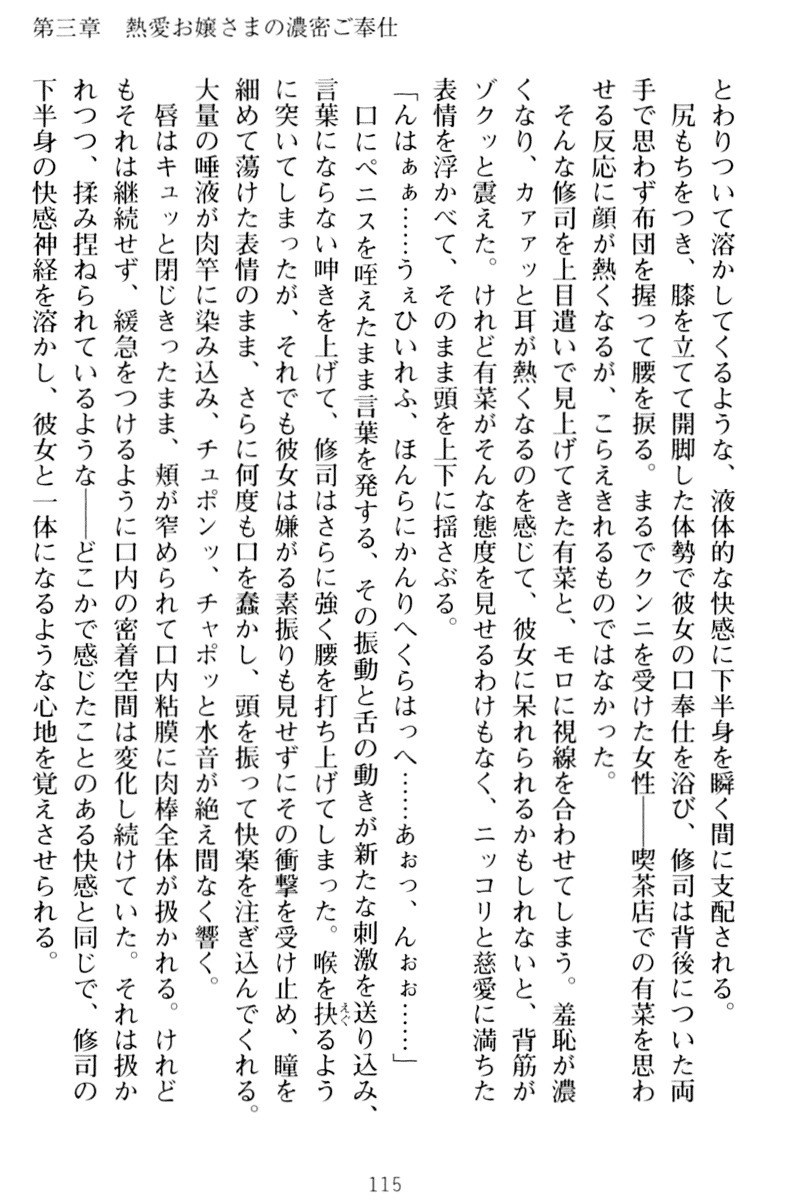 第三章　熱愛お嬢さまの濃密ご奉仕
とわりついて溶かしてくるような、液体的な快感に下半身を瞬く間に支配される。
　尻もちをつき、膝を立てて開脚した体勢で彼女の口奉仕を浴び、修司は背後についた両
手で思わず布団を握って腰を捩る。まるでクンニを受けた女性――喫茶店での有菜を思わ
せる反応に顔が熱くなるが、こらえきれるものではなかった。
　そんな修司を上目遣いで見上げてきた有菜と、モロに視線を合わせてしまう。羞恥が濃
くなり、カァァッと耳が熱くなるのを感じて、彼女に呆れられるかもしれないと、背筋が
ゾクッと震えた。けれど有菜がそんな態度を見せるわけもなく、ニッコリと慈愛に満ちた
表情を浮かべて、そのまま頭を上下に揺さぶる。
「んはぁぁ……うぇひいれふ、ほんらにかんりへくらはっへ……あぉっ、んぉぉ……」
　口にペニスを咥えたまま言葉を発する、その振動と舌の動きが新たな刺激を送り込み、
言葉にならない呻きを上げて、修司はさらに強く腰を打ち上げてしまった。喉を抉るよう
えぐ
に突いてしまったが、それでも彼女は嫌がる素振りも見せずにその衝撃を受け止め、瞳を
細めて蕩けた表情のまま、さらに何度も口を蠢かし、頭を振って快楽を注ぎ込んでくれる。
大量の唾液が肉竿に染み込み、チュポンッ、チャポッと水音が絶え間なく響く。
　唇はキュッと閉じきったまま、頬が窄められて口内粘膜に肉棒全体が扱かれる。けれど
もそれは継続せず、緩急をつけるように口内の密着空間は変化し続けていた。それは扱か
れつつ、揉み捏ねられているような――どこかで感じたことのある快感と同じで、修司の
下半身の快感神経を溶かし、彼女と一体になるような心地を覚えさせられる。
115